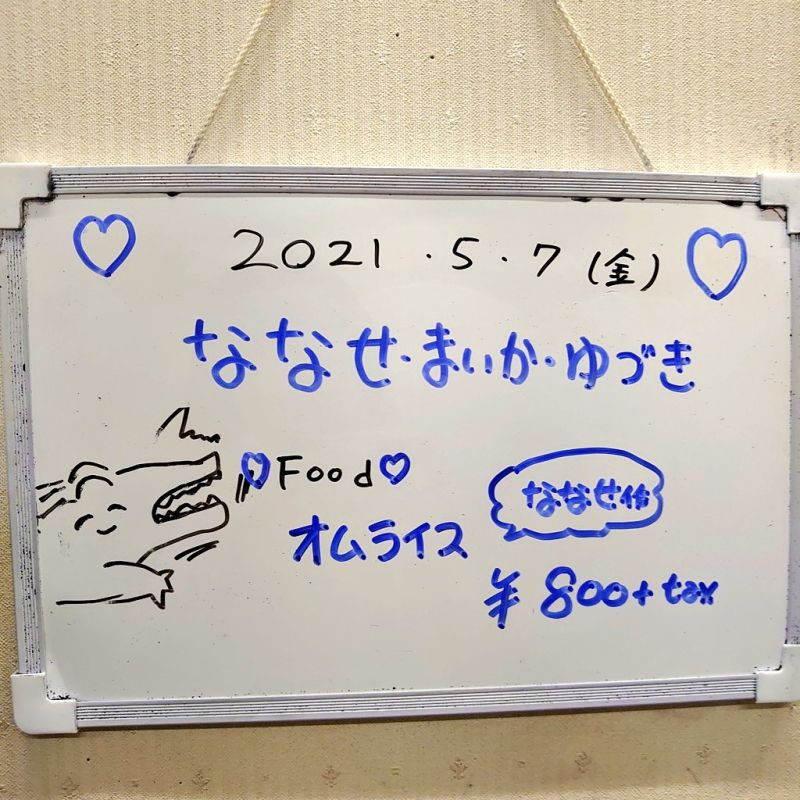 2021.5.7(金)
ななせ・まいか・ゆづき
♡Food♡
オムライス
ななせ作
¥800+tax